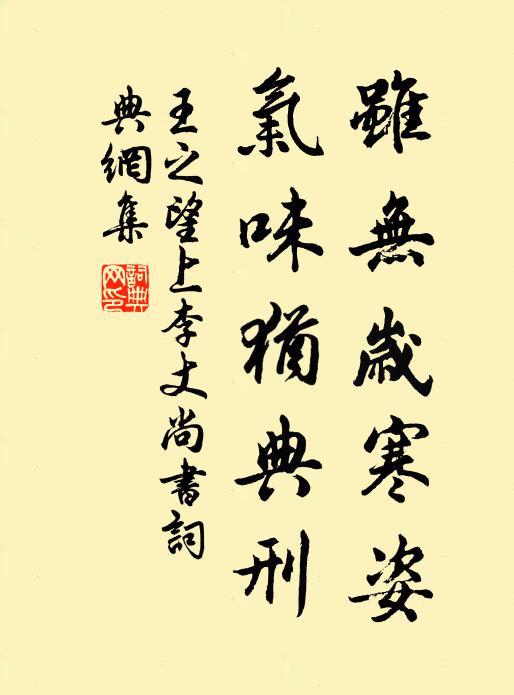 雖無歲寒姿
氣味猶典刑
王之望上李丈尚書詞
典網集
詞典
网印